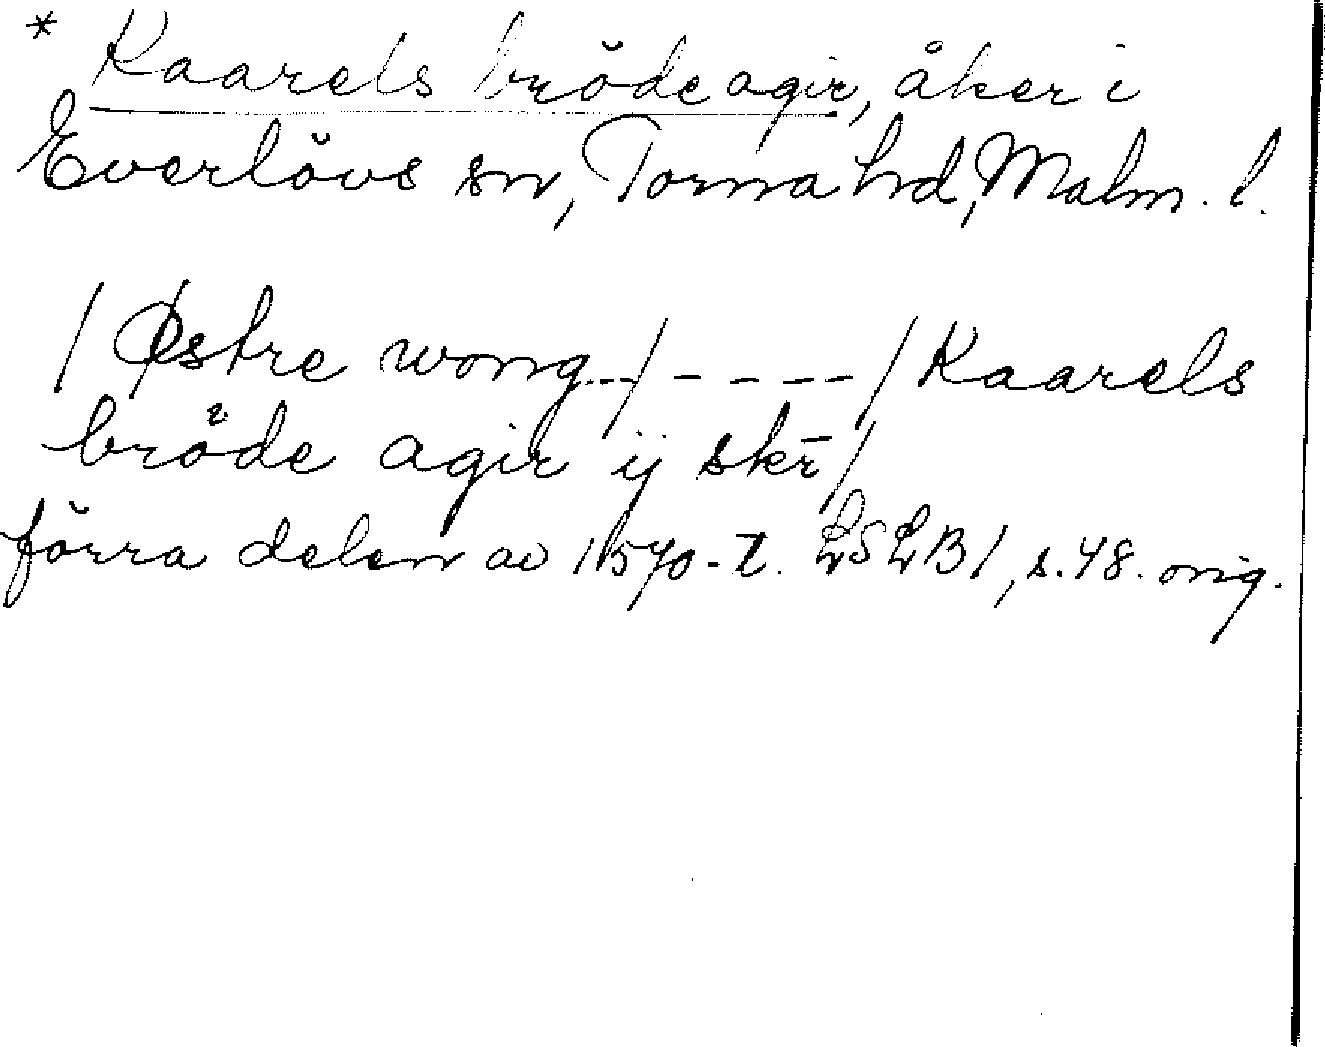 * Kaarels bröde agir, åker i
Everlövs sn, Torna hd, Malm. l.
/ Østre wong... / - - - - / Kaarels
bröde agir ij skr̄ /
förra delen av 1570-t. LSLB1, s. 48. orig.